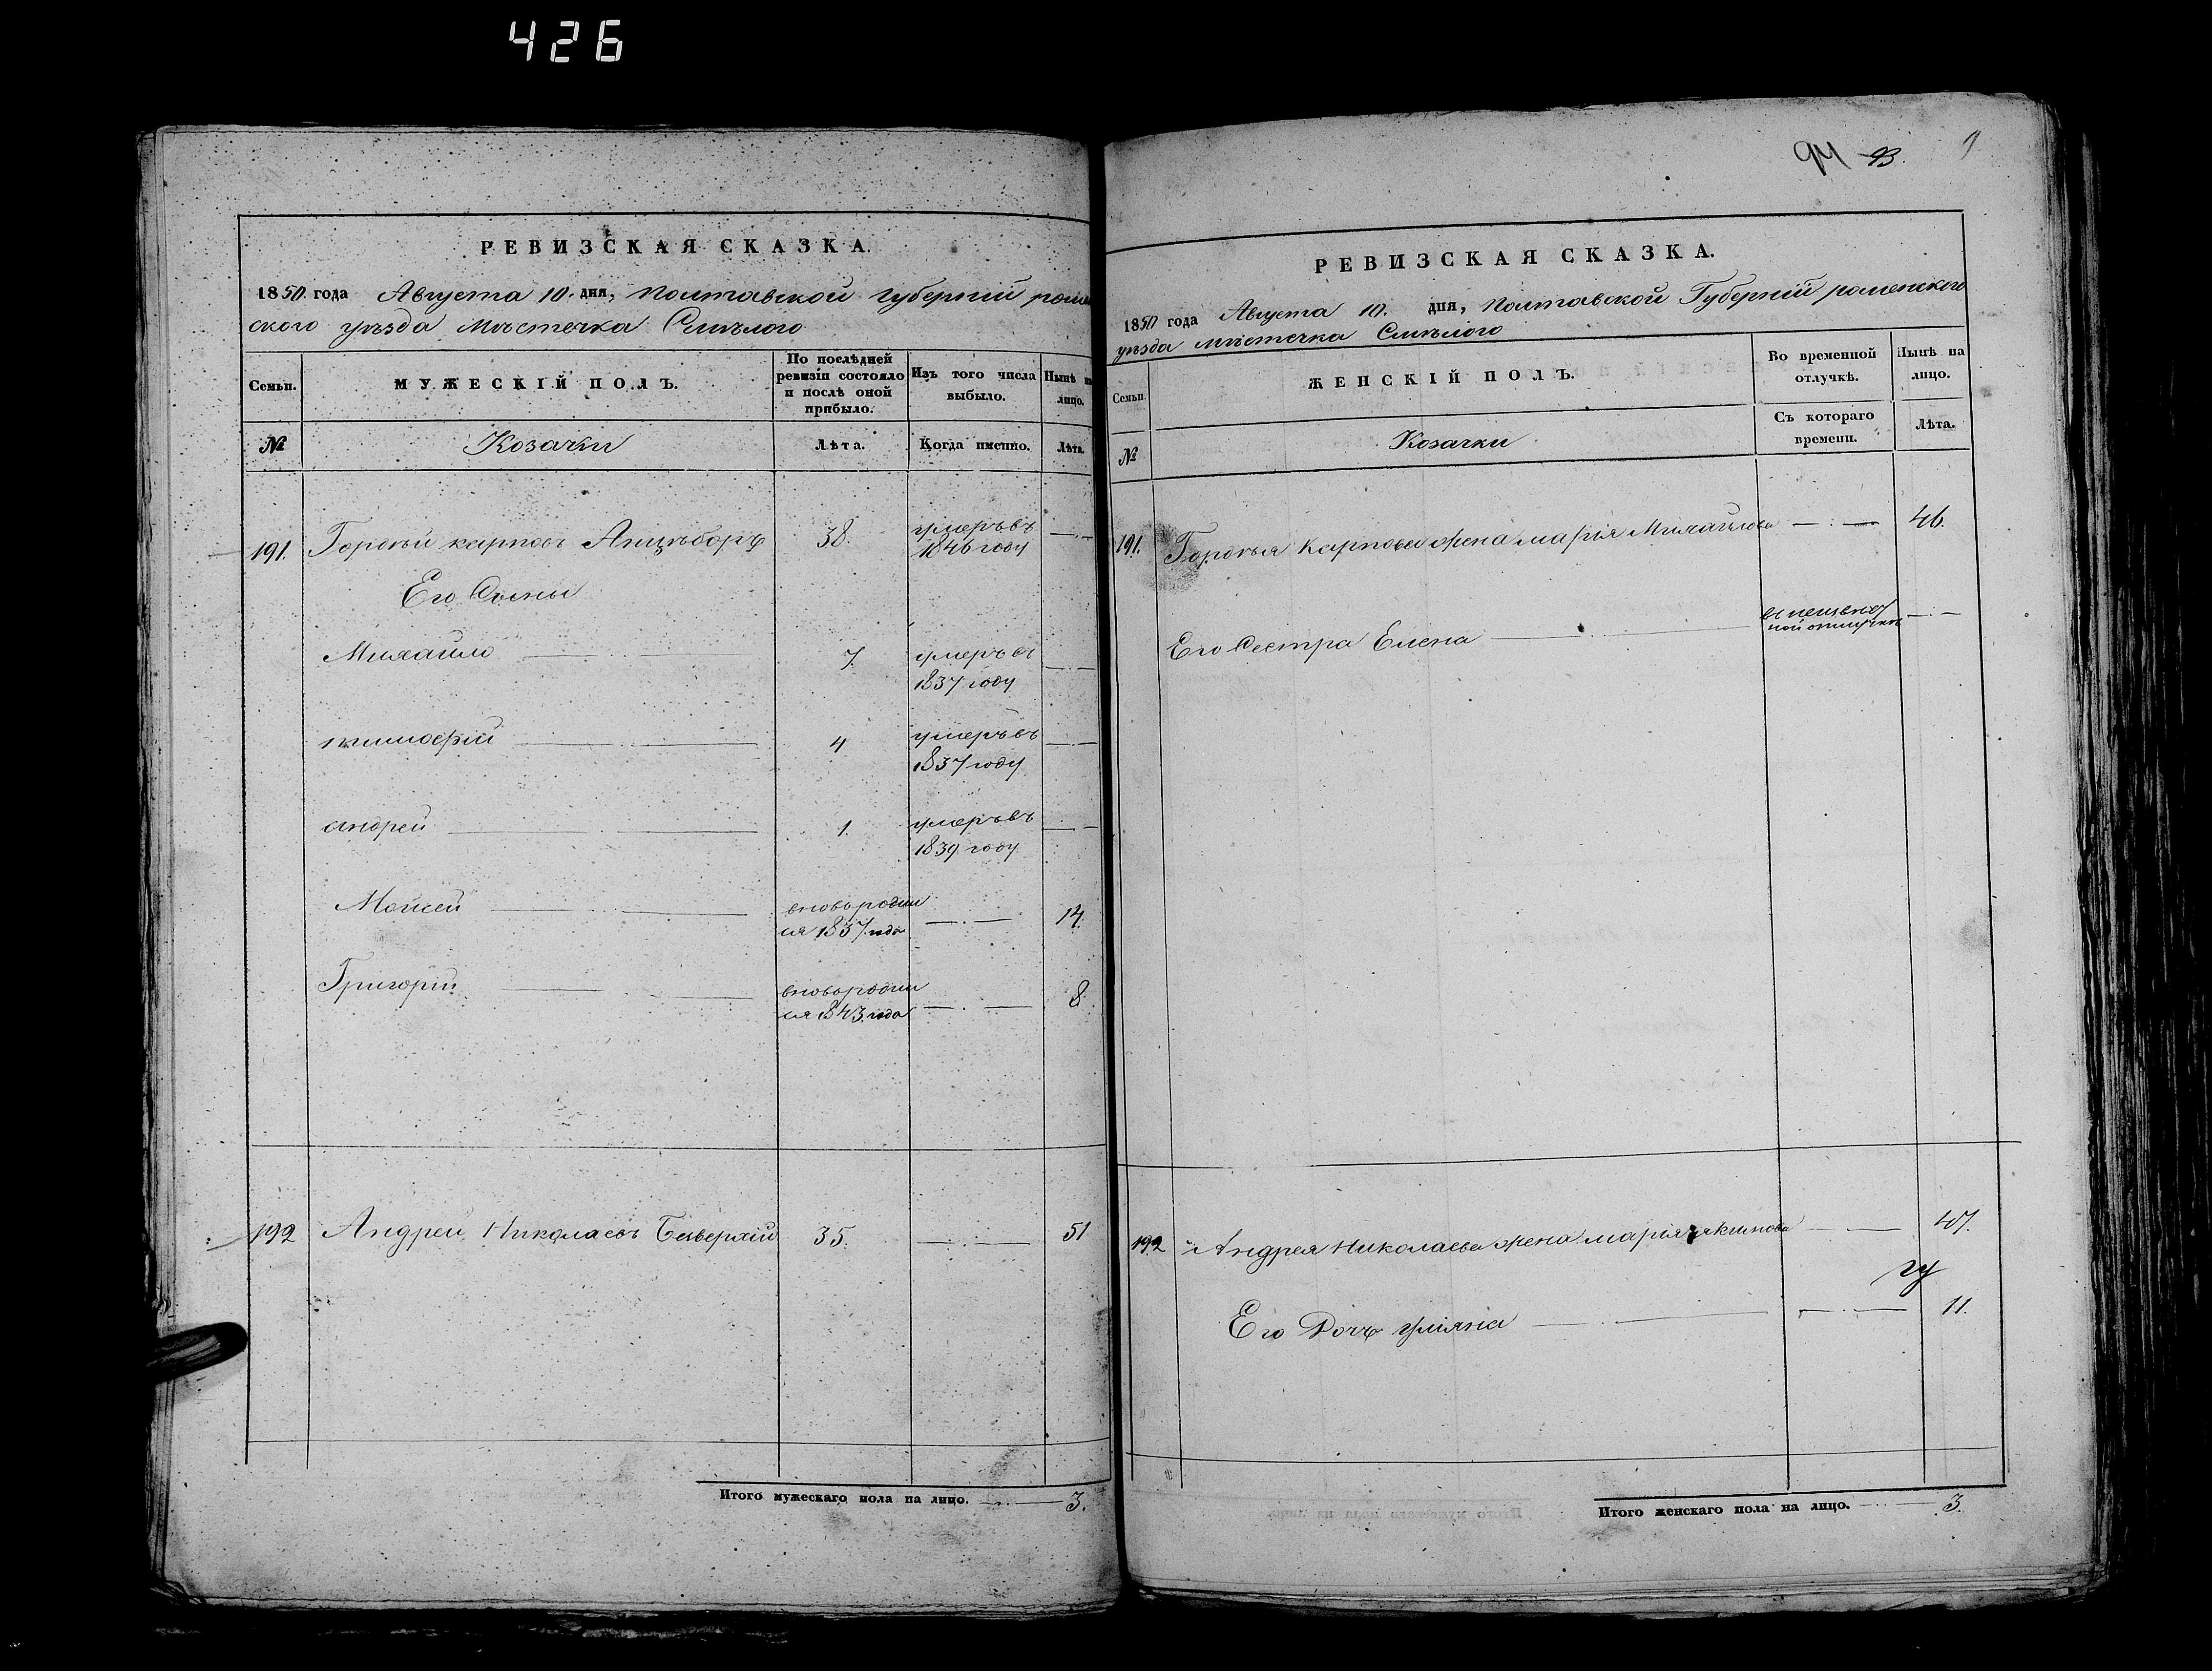 426
РЕВИЗСКАЯ СКАЗКА.
1850. года Августа 10. дня, Полтавской Губерніи ромен
ского уѣзда мѣстечка Смѣлого
Семьи. МУЖЕСКІЙ ПОЛЪ. По послѣдней ревизіи состояло и послѣ оной прибыло. Изъ того числа выбыло. Нынѣ на лицо.
№ Козачки Лѣта. Когда именно. Лѣта.
191. Гордѣй карповъ 38. умеръ въ 1846 году
Его Сыны
Михайло 7. умеръ въ 1837 году
тимофій 4 умеръ въ 1837 году
андрей 1. умеръ въ 1839 году
Мойсей вновь родил ся 1837 года 14.
Григорій вновь родил ся 1843 года 8.
192 Андрей Николаевъ Безверхій 35. 51
Итого мужескаго пола на лицо. 3.
94 93.
РЕВИЗСКАЯ СКАЗКА.
1850 года Августа 10. дня, Полтавской Губерніи роменского
уѣзда мѣстечка Смѣлого
Семьи. ЖЕНСКІЙ ПОЛЪ. Во временной отлучкѣ. Нынѣ на лицо.
№ Козачки Съ котораго времени. Лѣта.
191. Гордѣя Карпова жена марія Михайлова 46.
Его Сестра Елена въ неизвѣст ной отлучкѣ
192 Андрея Николаева жена марія якимова 47.
Его Дочь уліяна 11.
Итого женскаго пола на лицо. 3.